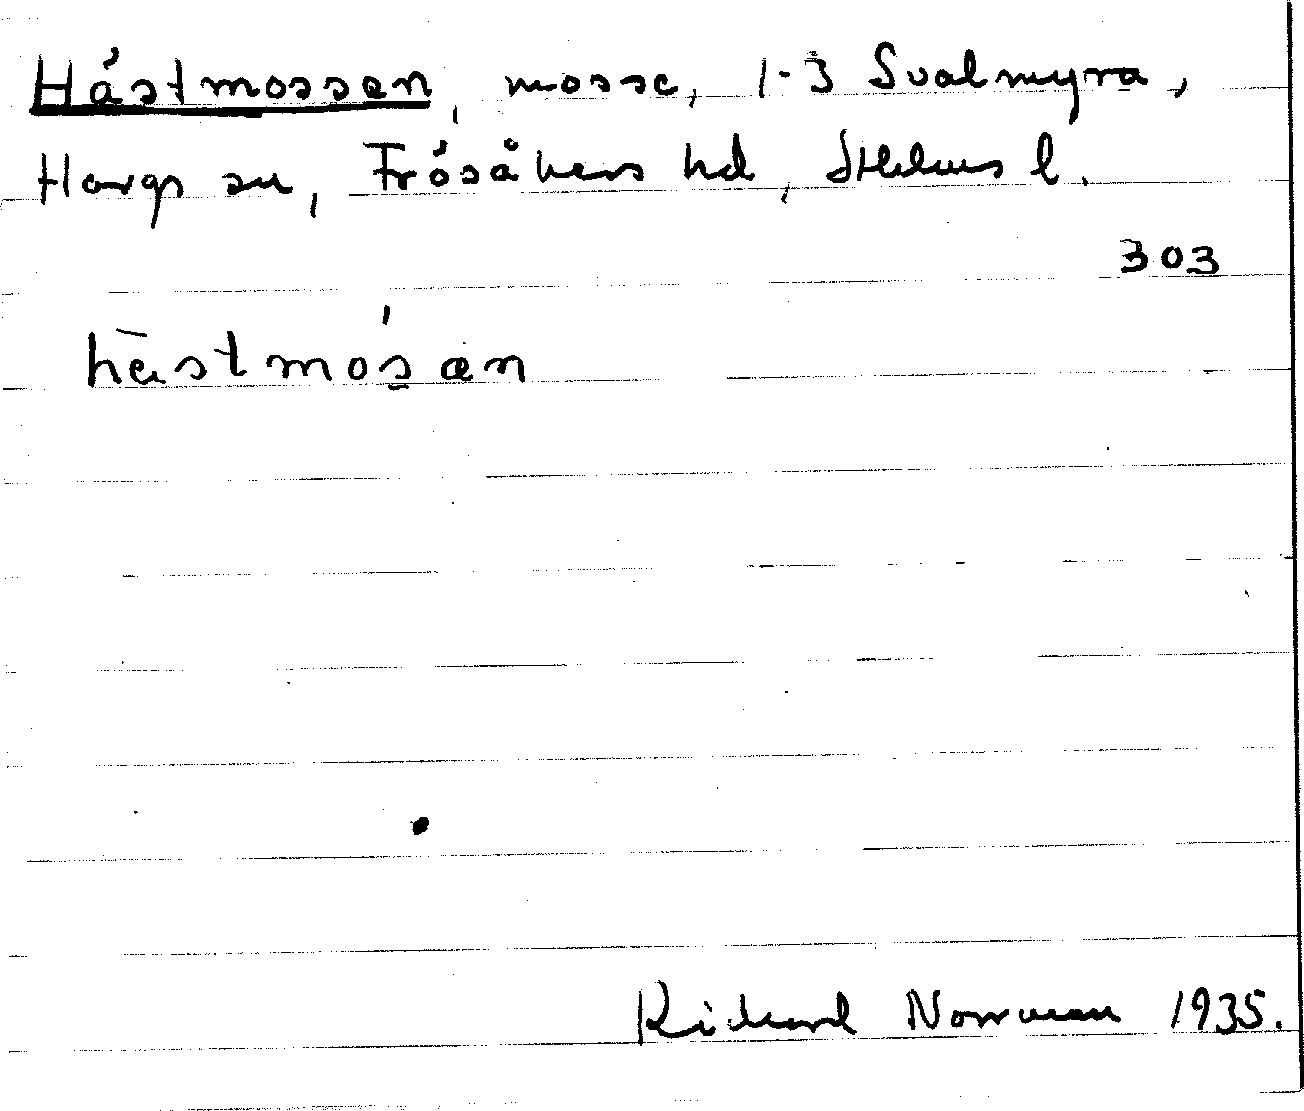 Hästmossen, mosse, 1-3 Svalmyra,
Hargs sn, Frösåkers hd, Sthlms l.
303
hästmósan
Rickard Norrman 1935.